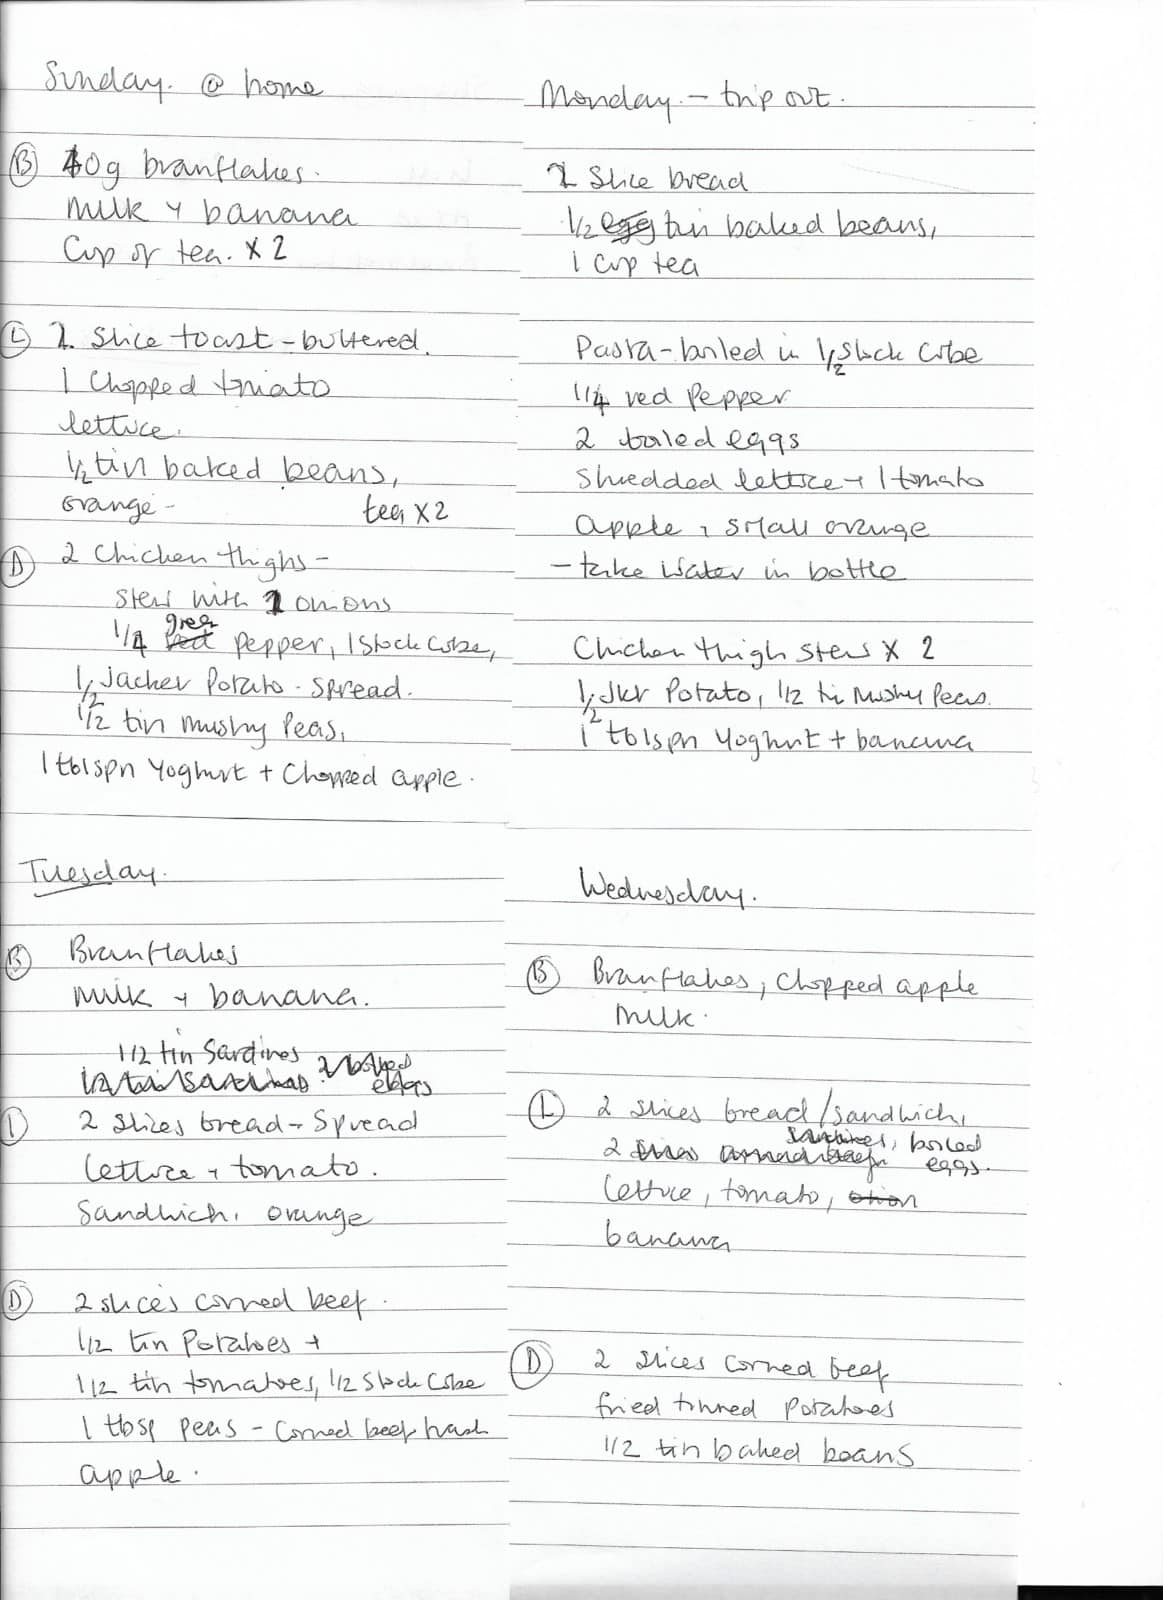 Sunday. @ home
Ⓑ 40g branflakes.
milk + banana
Cup of tea. x 2
Ⓛ 2 Slice toast - buttered.
1 Chopped tomato
lettuce.
1/2 tin baked beans,
orange - tea x 2
Ⓓ 2 Chicken thighs -
stew with 1 onions
green
1/4 red pepper, 1 Stock Cube,
1/2 Jacket Potato - spread.
1/2 tin mushy Peas,
1 tblspn Yoghurt + Chopped apple.
Monday. - trip out.
2 Slice bread
1/2 egg tin baked beans,
1 cup tea
Pasta - boiled in 1/2 Stock Cube
1/4 red Pepper
2 boiled eggs
Shredded lettuce + 1 tomato
apple + small orange
- take water in bottle
Chicken thigh stew x 2
1/2 Jkt Potato, 1/2 tin Mushy Peas.
1 tblspn Yoghurt + banana
Tuesday.
Ⓑ Branflakes
milk + banana.
1/2 tin Sardines
1/2 tin Sardines. 2 boiled
eggs
2 Slices bread - Spread
lettuce + tomato.
Sandwich, orange
Ⓓ 2 slices corned beef.
1/2 tin Potatoes +
1/2 tin tomatoes, 1/2 Stock Cube
1 tbsp peas - Corned beef hash
apple.
Wednesday.
Ⓑ Branflakes, Chopped apple
milk.
Ⓛ 2 slices bread/sandwich,
sardines, boiled
2 slices corned beef eggs.
lettuce, tomato, onion
banana
Ⓓ 2 slices corned beef
fried tinned potatoes
1/2 tin baked beans